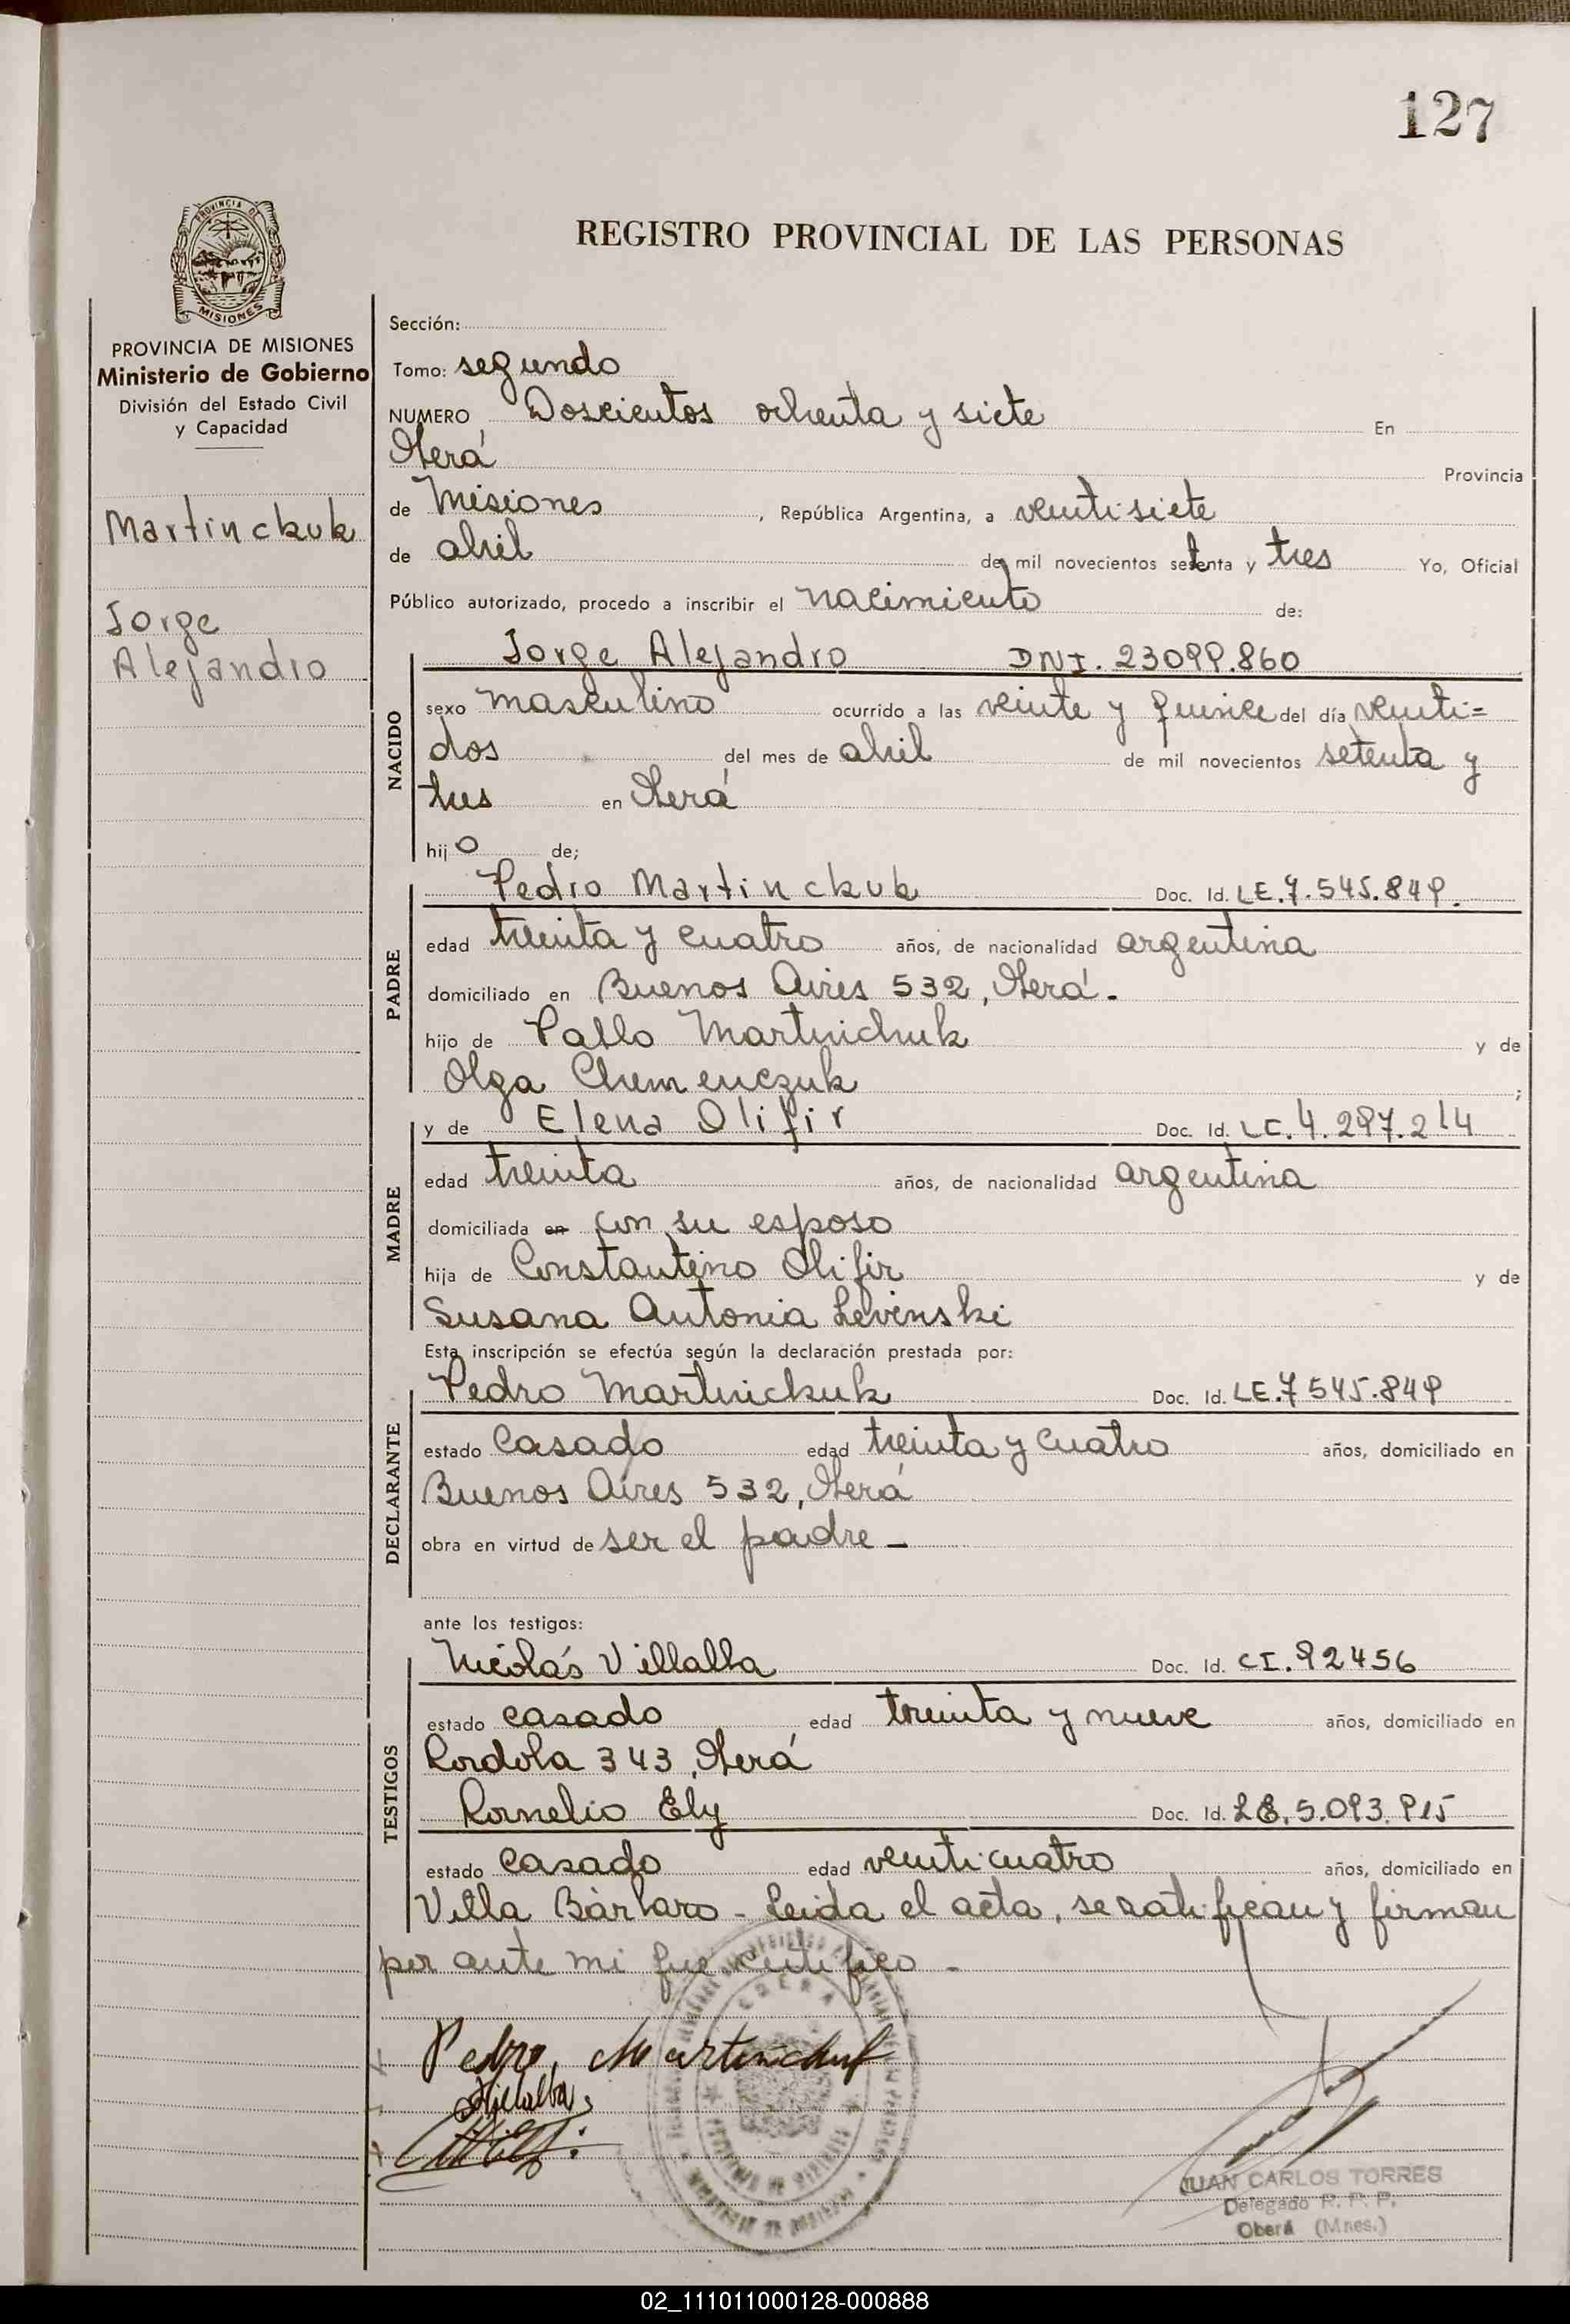 127
PROVINCIA DE
MISIONES
REGISTRO PROVINCIAL DE LAS PERSONAS
PROVINCIA DE MISIONES
Ministerio de Gobierno
División del Estado Civil
y Capacidad
Martinckuk
Jorge
Alejandro
Sección:
Tomo: segundo
NUMERO Doscientos ochenta y siete En
Oberá Provincia
de Misiones, República Argentina, a veintisiete
de abril de mil novecientos setenta y tres Yo, Oficial
Público autorizado, procedo a inscribir el nacimiento de:
Jorge Alejandro DNI. 23099.860
NACIDO
sexo masculino ocurrido a las veinte y quince del día veinti=
dos del mes de abril de mil novecientos setenta y
tres en Oberá
hijo de;
Pedro Martinckuk Doc. Id. LE.7.545.849.
PADRE
edad treinta y cuatro años, de nacionalidad argentina
domiciliado en Buenos Aires 532, Oberá.
hijo de Pablo Martinichuk y de
Olga Chemenczuk;
y de Elena Olifir Doc. Id. LC.4.297.214
MADRE
edad treinta años, de nacionalidad argentina
domiciliada en con su esposo
hija de Constantino Olifir y de
Susana Antonia Levinski
Esta inscripción se efectúa según la declaración prestada por:
Pedro Martinickuk Doc. Id. LE.7545.849
DECLARANTE
estado casado edad treinta y cuatro años, domiciliado en
Buenos Aires 532, Oberá
obra en virtud de ser el padre -
ante los testigos:
Nicolás Villalba Doc. Id. CI.92456
TESTIGOS
estado casado edad treinta y nueve años, domiciliado en
Cordoba 343, Oberá
Cornelio Ely Doc. Id. LE.5.093.915
estado casado edad veinticuatro años, domiciliado en
Villa Bárbaro - Leida el acta, se ratifican y firman
por ante mi que certifico -
Pedro Martinchuk
Villalba
OBERA
JUAN CARLOS TORRES
Delegado R. P. P.
Oberá (Mnes.)
02_111011000128-000888